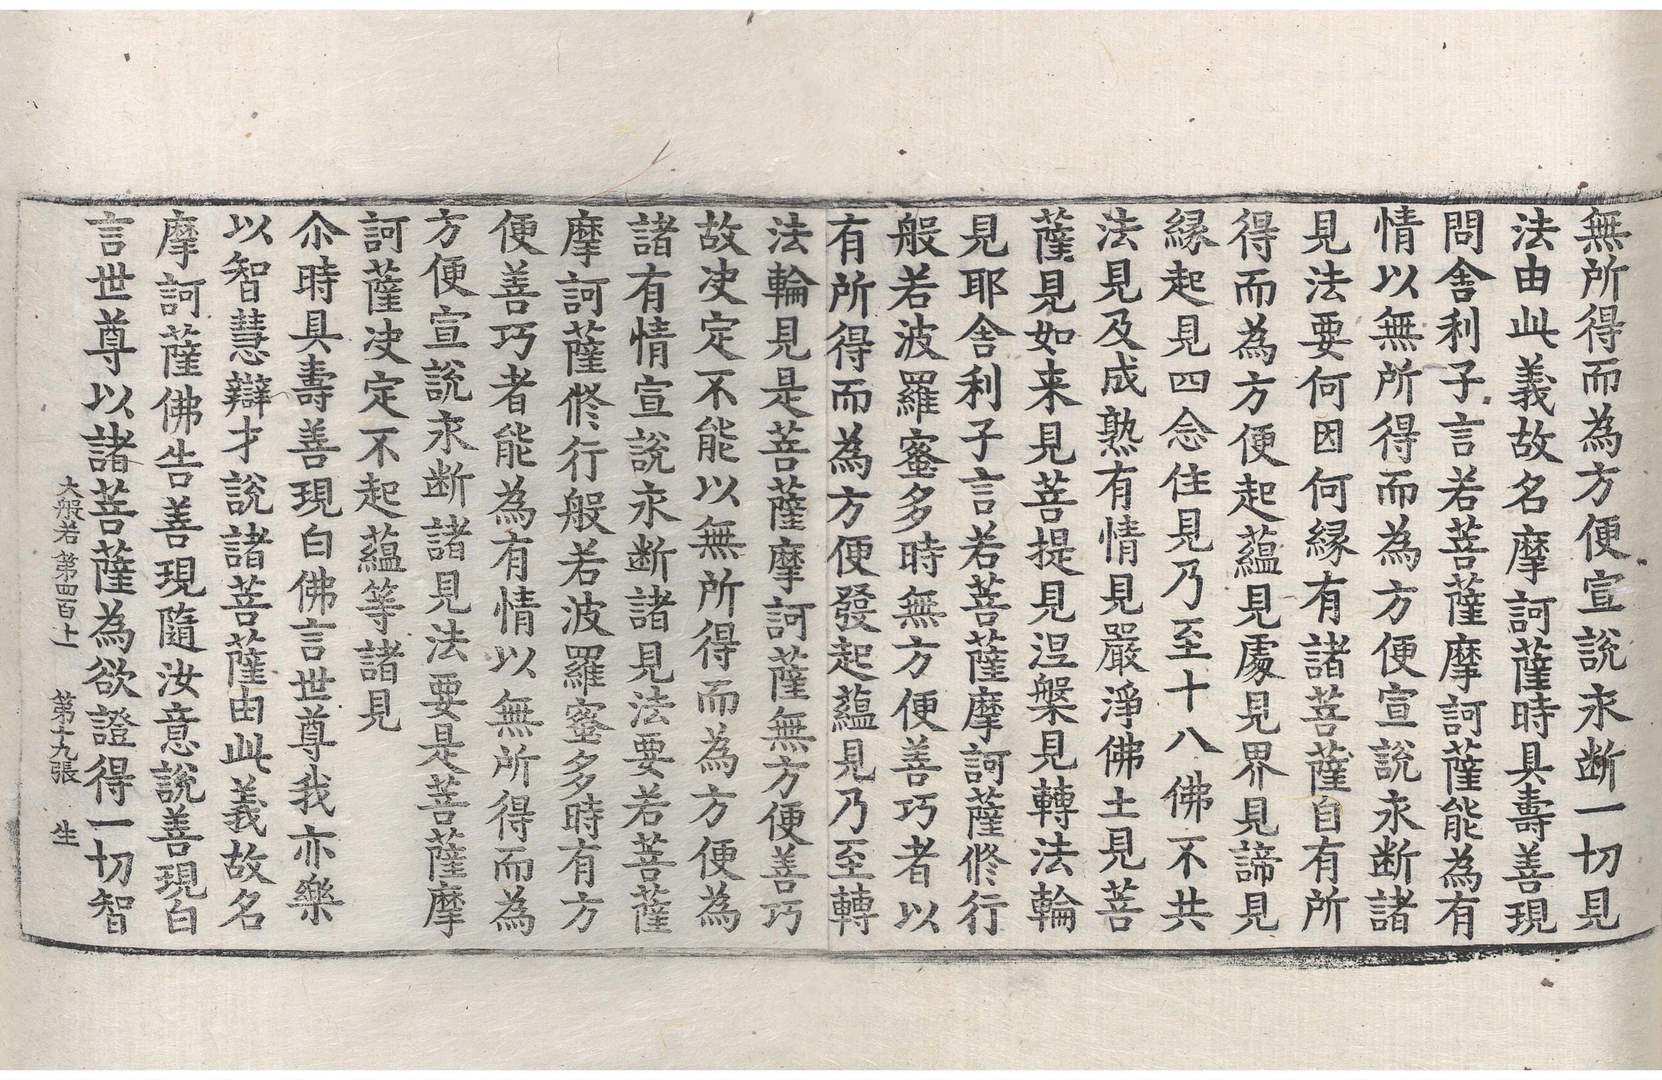 無所得而為方便宣說永断一切見
法由此義故名摩訶薩時具壽善現
問舍利子言若菩薩摩訶薩能為有
情以無所得而為方便宣說永断諸
見法要何因何縁有諸菩薩自有所
得而為方便起蘊見處見界見諦見
縁起見四念住見乃至十八佛不共
法見及成熟有情見嚴淨佛土見菩
薩見如来見菩提見涅槃見轉法輪
見耶舍利子言若菩薩摩訶薩修行
般若波羅蜜多時無方便善巧者以
有所得而為方便發起蘊見乃至轉
法輪見是菩薩摩訶薩無方便善巧
故决定不能以無所得而為方便為
諸有情宣說永断諸見法要若菩薩
摩訶薩修行般若波羅蜜多時有方
便善巧者能為有情以無所得而為
方便宣說永断諸見法要是菩薩摩
訶薩决定不起蘊等諸見
尒時具壽善現白佛言世尊我亦樂
以智慧辯才說諸菩薩由此義故名
摩訶薩佛告善現隨汝意說善現白
言世尊以諸菩薩為欲證得一切智
大般若第四百十一 第十九張 生